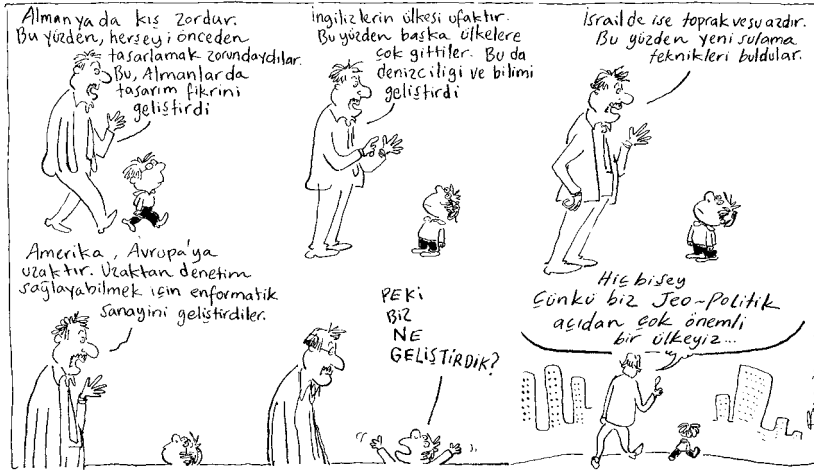 Almanyada kış zordur.
Bu yüzden, herşeyi önceden
tasarlamak zorundaydılar.
Bu, Almanlarda
tasarım fikrini
geliştirdi
İngilizlerin ülkesi ufaktır.
Bu yüzden başka ülkelere
çok gittiler. Bu da
denizciliği ve bilimi
geliştirdi
İsrailde ise toprak ve su azdır.
Bu yüzden yeni sulama
teknikleri buldular.
Amerika, Avrupa'ya
uzaktır. Uzaktan denetim
sağlayabilmek için enformatik
sanayini geliştirdiler.
PEKİ
BİZ
NE
GELİŞTİRDİK?
Hiç bişey
Çünkü biz Jeo-Politik
açıdan çok önemli
bir ülkeyiz...